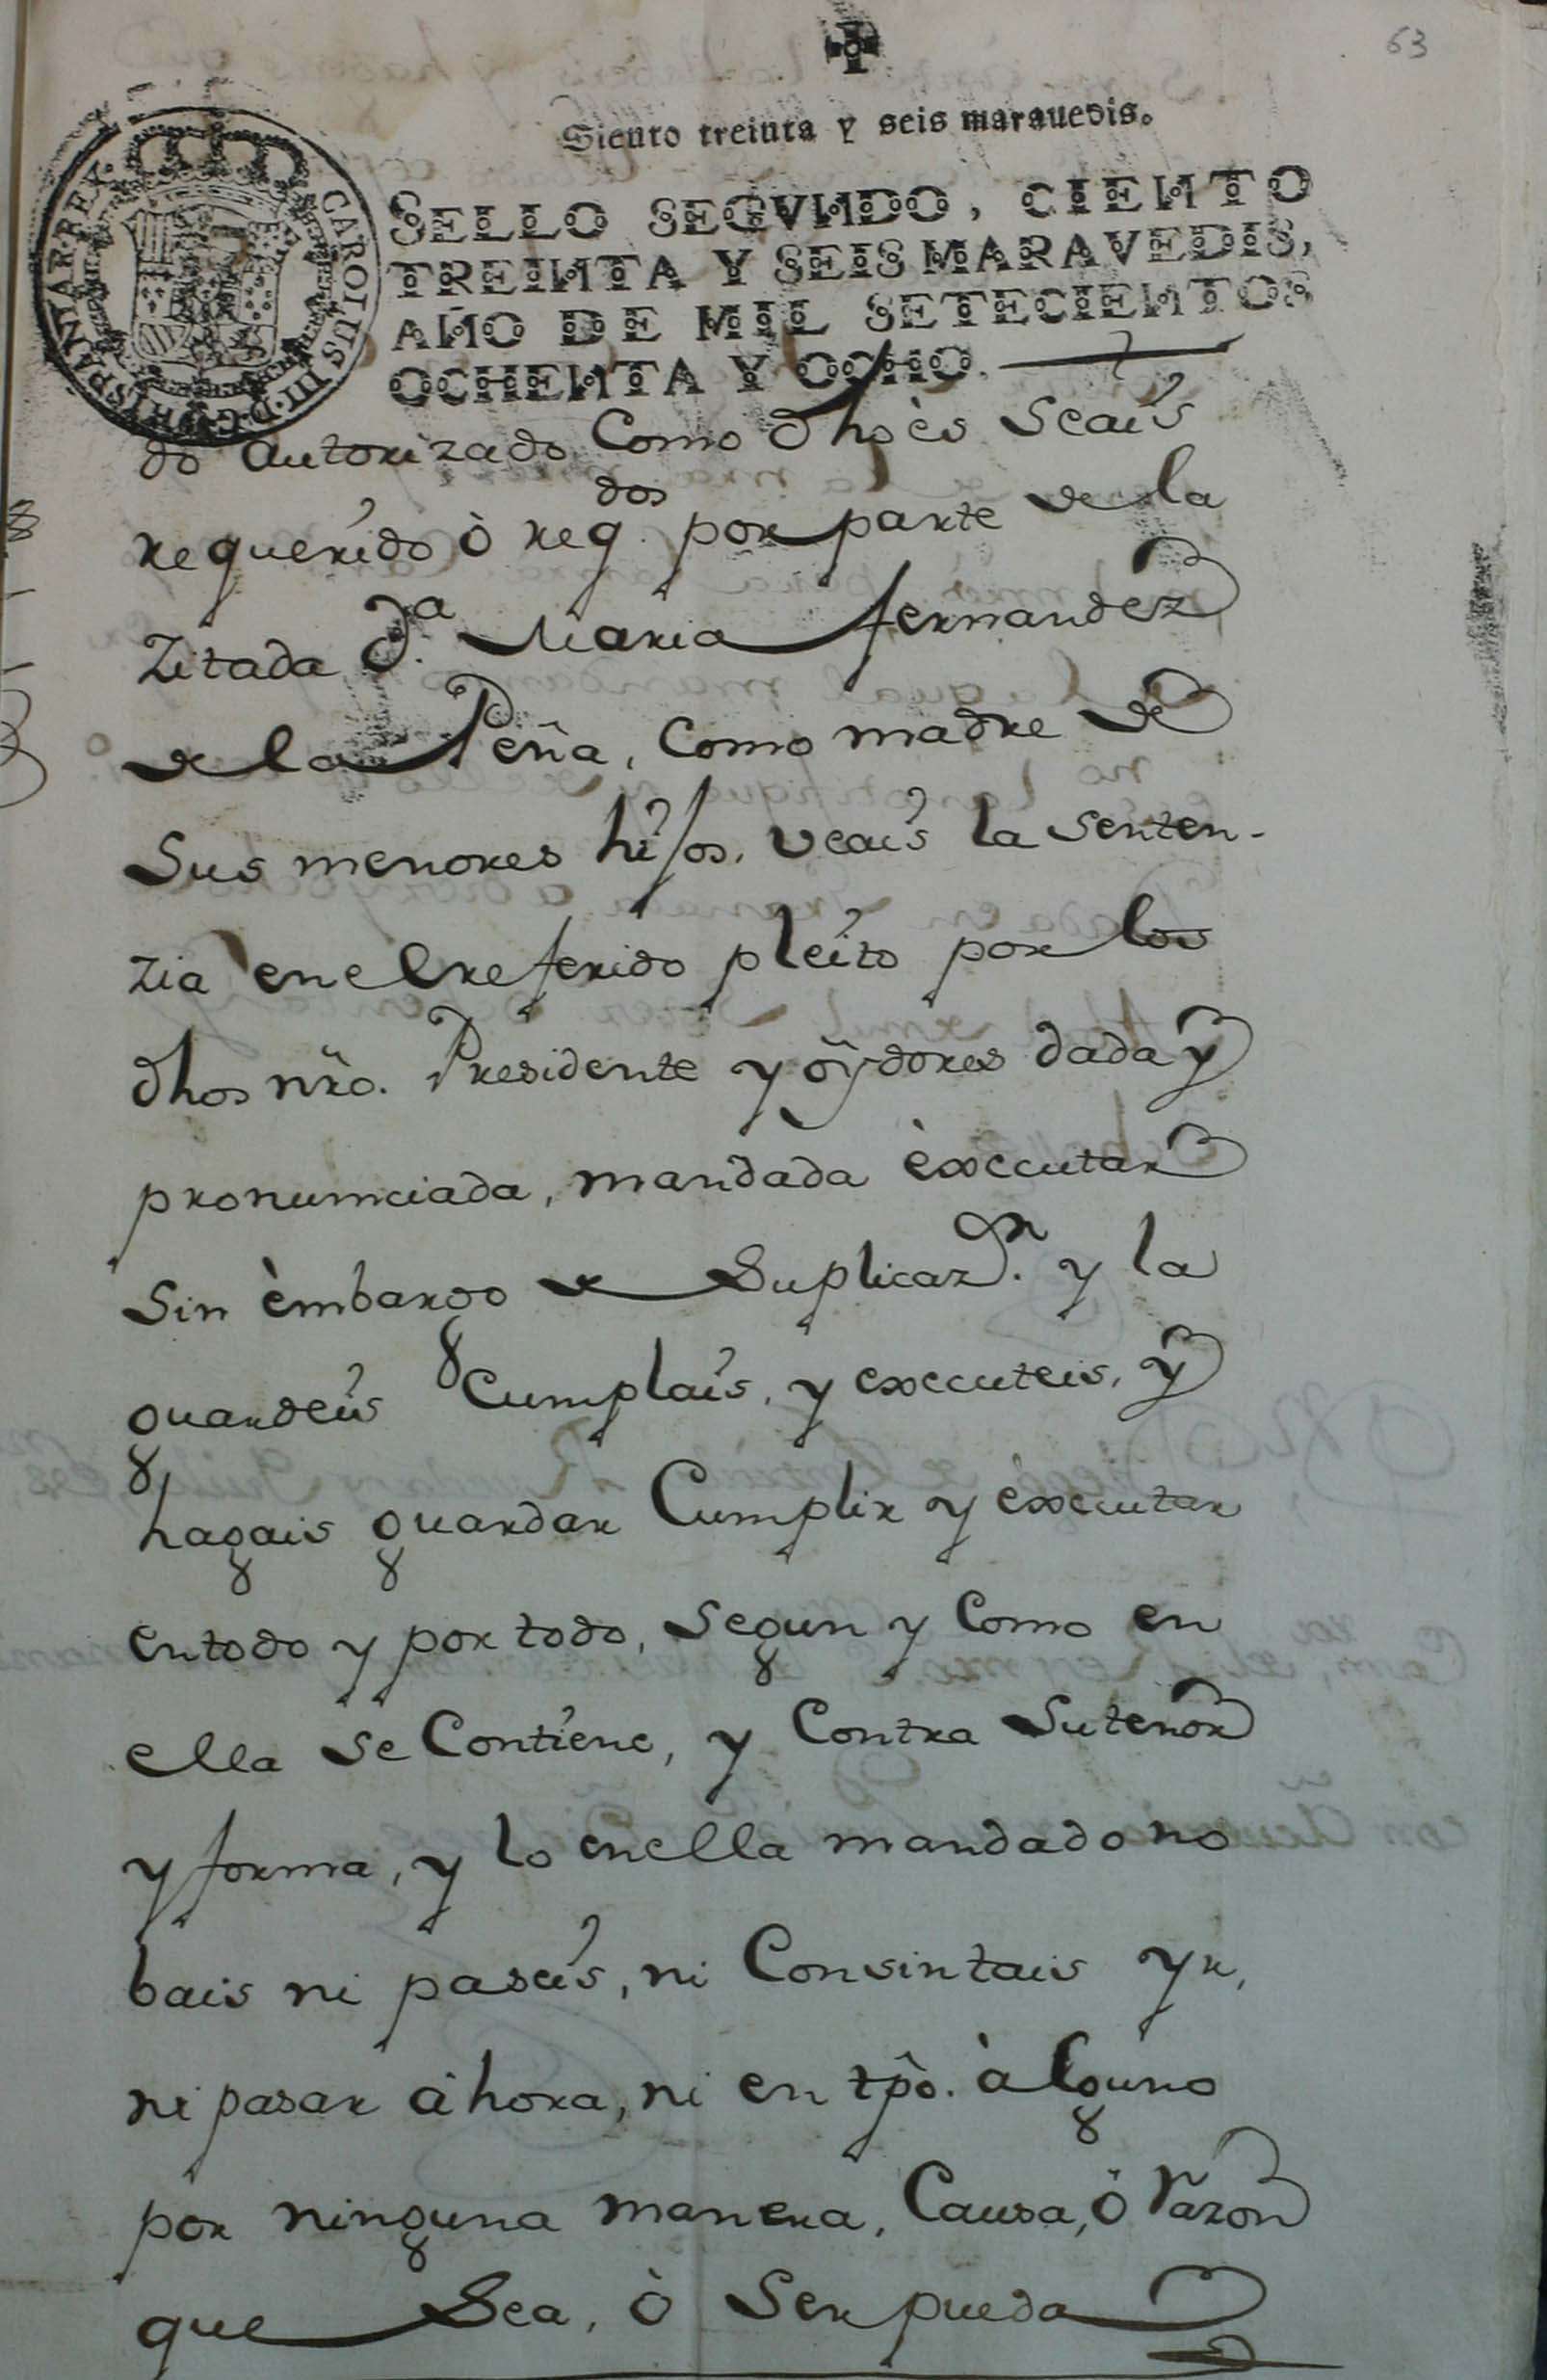 63
Siento treinta y seis marauedis.
SELLO SEGVNDO, CIENTO
TREINTA Y SEIS MARAVEDIS,
AÑO DE MIL SETECIENTOS
OCHENTA Y OCHO.
CAROLUS III D G HISPANIAR REX
do autorizado Como dho ès Seais
requerido ò reqdos. por parte de la
Zitada Da. Maria fernandez
de la Peña, Como madre de
Sus menores hijos, veais la Senten-
zia en el referido pleito por los
dhos nro. Presidente y oydores dada y
pronunciada, mandada èxecutar
Sin èmbargo de Suplicazon. y la
guardeis Cumplais, y executeis, y
hagais guardar Cumplir y èxecutar
en todo y por todo, Segun y Como en
ella Se Contiene, y Contra Su tenor
y forma, y lo en ella mandado no
bais ni paseis, ni Consintais yr,
ni pasar àhora, ni en tpo. àlguno
por ninguna manera, Causa, ò razon
que Sea, ò Ser pueda